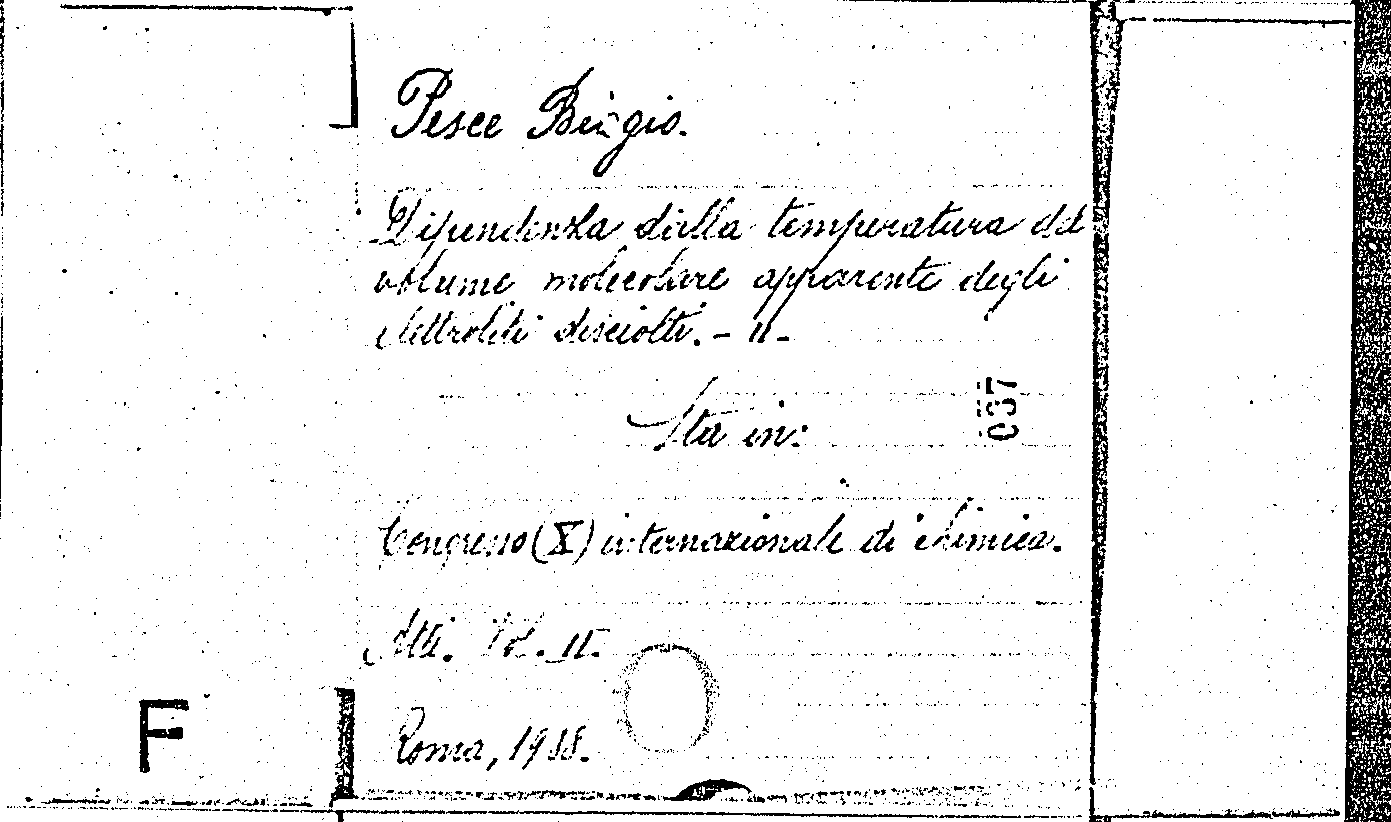 Pesce Biagio.
Dipendenza dalla temperatura del
volume molecolare apparente degli
elettroliti disciolti. - II -
Sta in:
037
Congresso (X) internazionale di chimica.
Atti. Vol. II.
F
Roma, 1938.